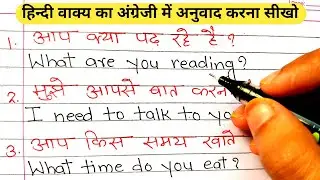 हिन्दी वाक्य का अंग्रेजी में अनुवाद करना सीखो
1. आप क्या पढ़ रहे है?
What are you reading?
2. मुझे आपसे बात करनी
I need to talk to yo
3. आप किस समय खाते
What time do you eat?